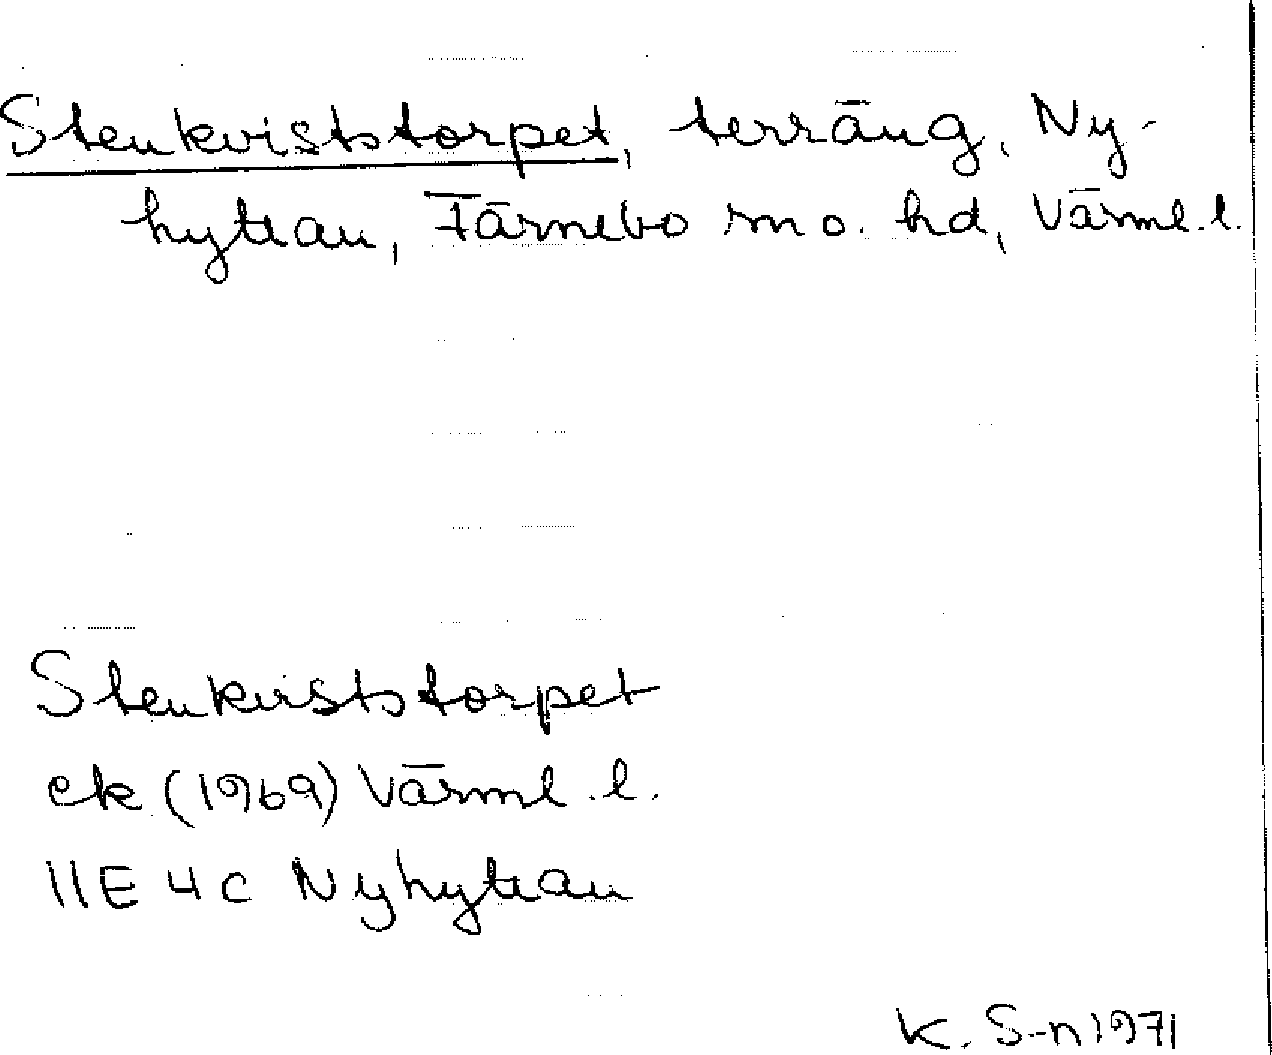 Stenkviststorpet, terräng, Ny-
hyttan, Färnebo sn o. hd, Värml. l.
Stenkviststorpet
ek (1969) Värml. l.
11E 4c Nyhyttan
K. S-n 1971